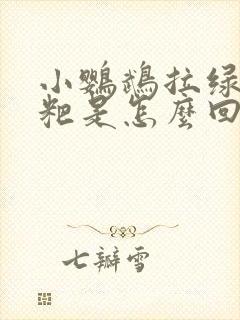 小鹦鹉拉绿
粑是怎麼回
七瓣雪